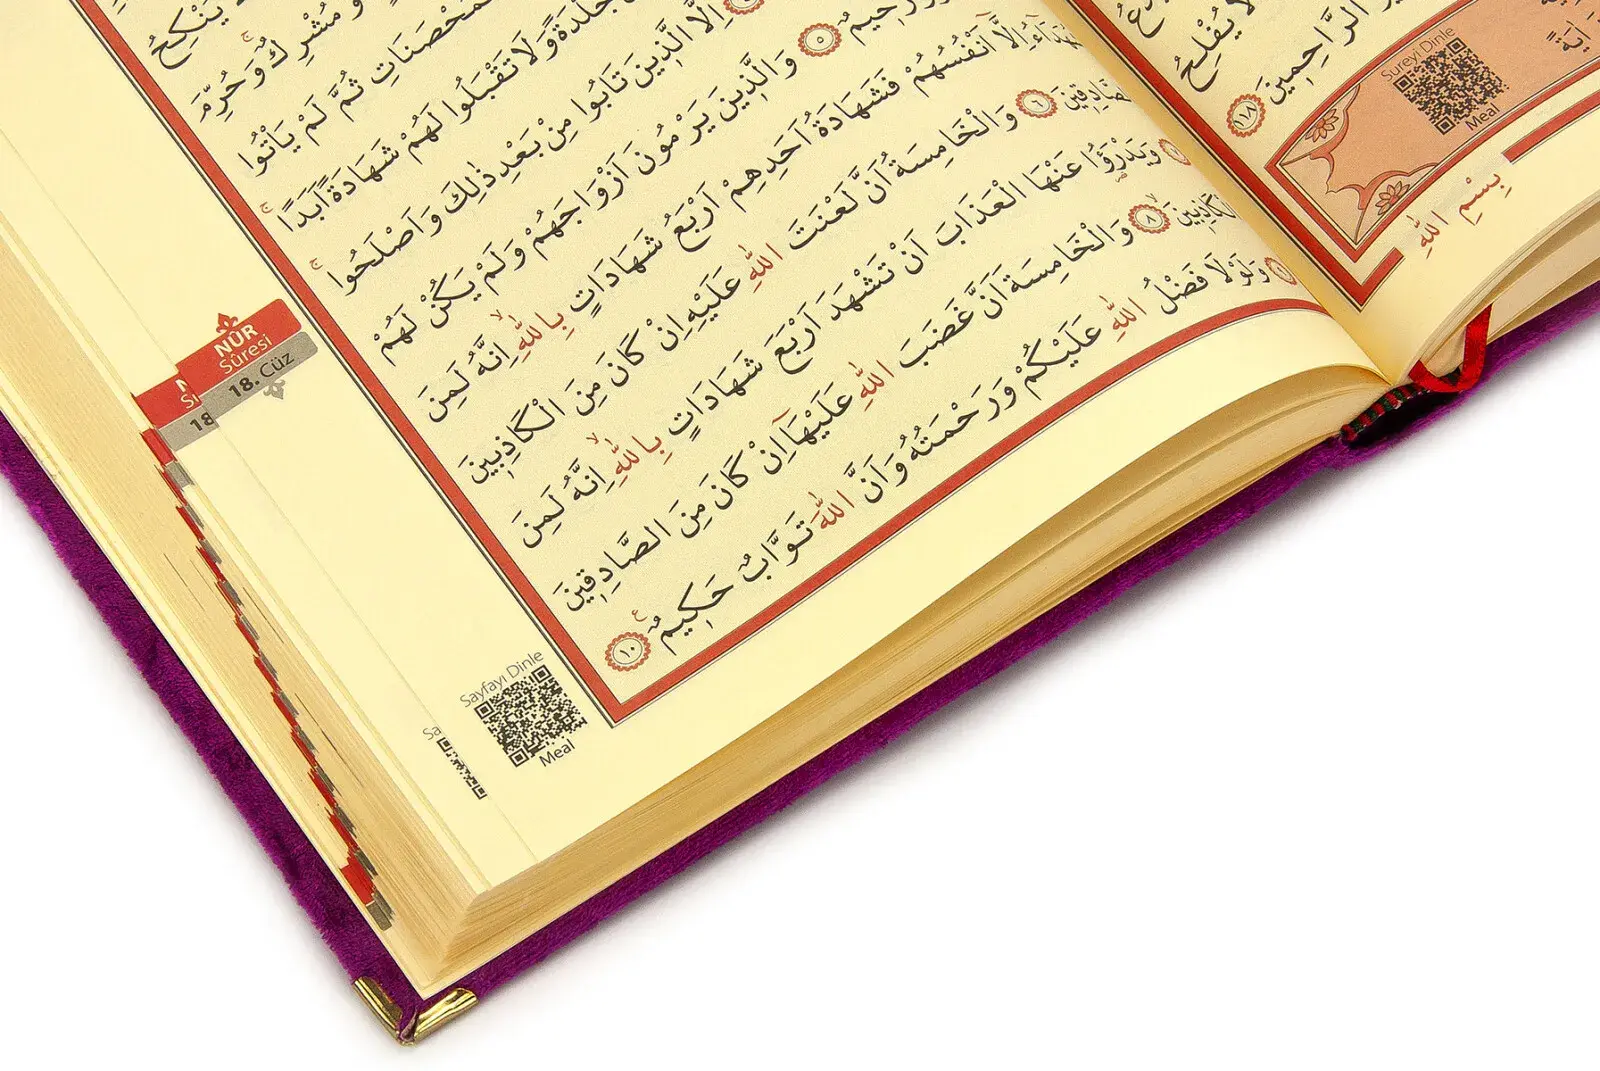 يَنْكِحُ
مُشْرِكٌ وَحُرِّمَ
ثُمَّ لَمْ يَأْتُوا
جَلْدَةً وَلَا تَقْبَلُوا لَهُمْ شَهَادَةً اَبَدًا
اِلَّا الَّذِينَ تَابُوا مِنْ بَعْدِ ذٰلِكَ وَاَصْلَحُوا
رَحِيمٌ ٥ وَالَّذِينَ يَرْمُونَ اَزْوَاجَهُمْ وَلَمْ يَكُنْ لَهُمْ
اِلَّا اَنْفُسُهُمْ فَشَهَادَةُ اَحَدِهِمْ اَرْبَعُ شَهَادَاتٍ بِاللّٰهِ اِنَّهُ لَمِنَ
٦ وَالْخَامِسَةُ اَنَّ لَعْنَتَ اللّٰهِ عَلَيْهِ اِنْ كَانَ مِنَ الْكَاذِبِينَ
وَيَدْرَؤُا عَنْهَا الْعَذَابَ اَنْ تَشْهَدَ اَرْبَعَ شَهَادَاتٍ بِاللّٰهِ اِنَّهُ لَمِنَ
٨ وَالْخَامِسَةَ اَنَّ غَضَبَ اللّٰهِ عَلَيْهَا اِنْ كَانَ مِنَ الصَّادِقِينَ
وَلَوْلَا فَضْلُ اللّٰهِ عَلَيْكُمْ وَرَحْمَتُهُ وَاَنَّ اللّٰهَ تَوَّابٌ حَكِيمٌ ١٠
NÛR
Sûresi
18. Cüz
18
Sayfayı Dinle
Meal
لَا يُفْلِحُ
الرَّاحِمِينَ ١١٨
Sureyi Dinle
Meal
اٰيَةً
بِسْمِ اللّٰهِ